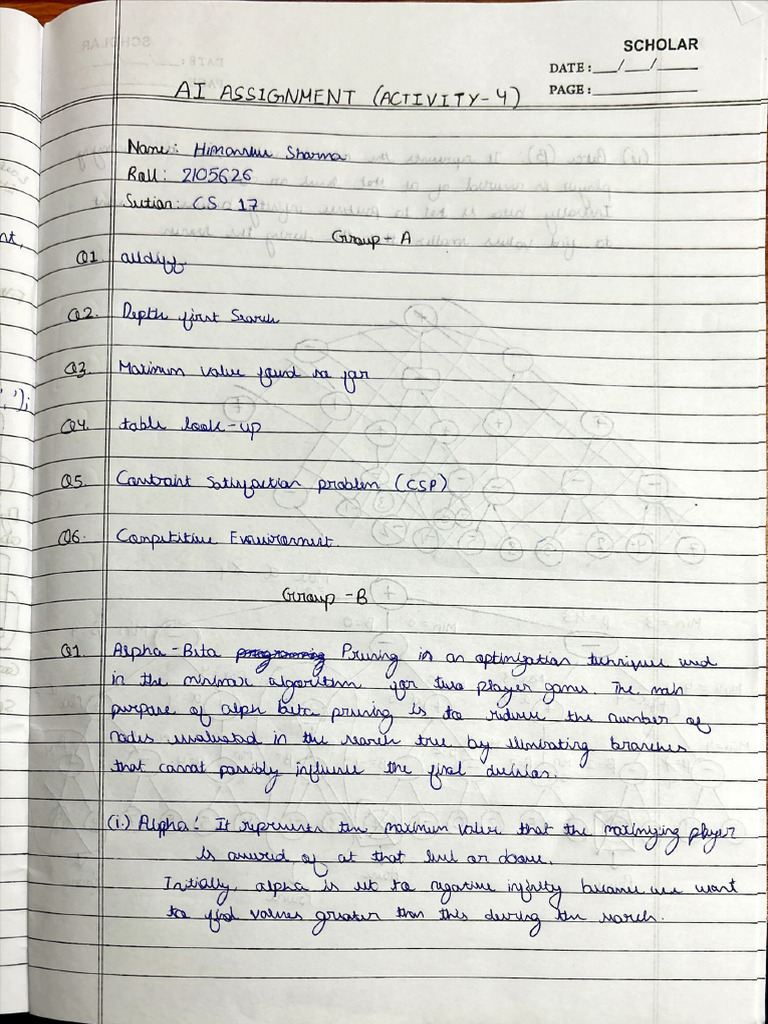 SCHOLAR
DATE: __/__/____
PAGE: ________
AI ASSIGNMENT (ACTIVITY-4)
Name: Himanshu Sharma
Roll: 2105626
Section: CS-17
Group-A
Q1. alldiff
Q2. Depth first Search
Q3. Maximum value found so far
Q4. table look-up
Q5. Constraint Satisfaction problem (CSP)
Q6. Competitive Environment.
Group-B
Q1. Alpha-Beta programming Pruning is an optimization technique used
in the minimax algorithm for two player games. The main
purpose of alph beta pruning is to reduce the number of
nodes evaluated in the search tree by eliminating branches
that cannot possibly influence the final decision.
(i.) Alpha: It represents the maximum value that the maximizing player
is assured of at that level or above.
Initially, alpha is set to negative infinity because we want
to find values greater than this during the search.